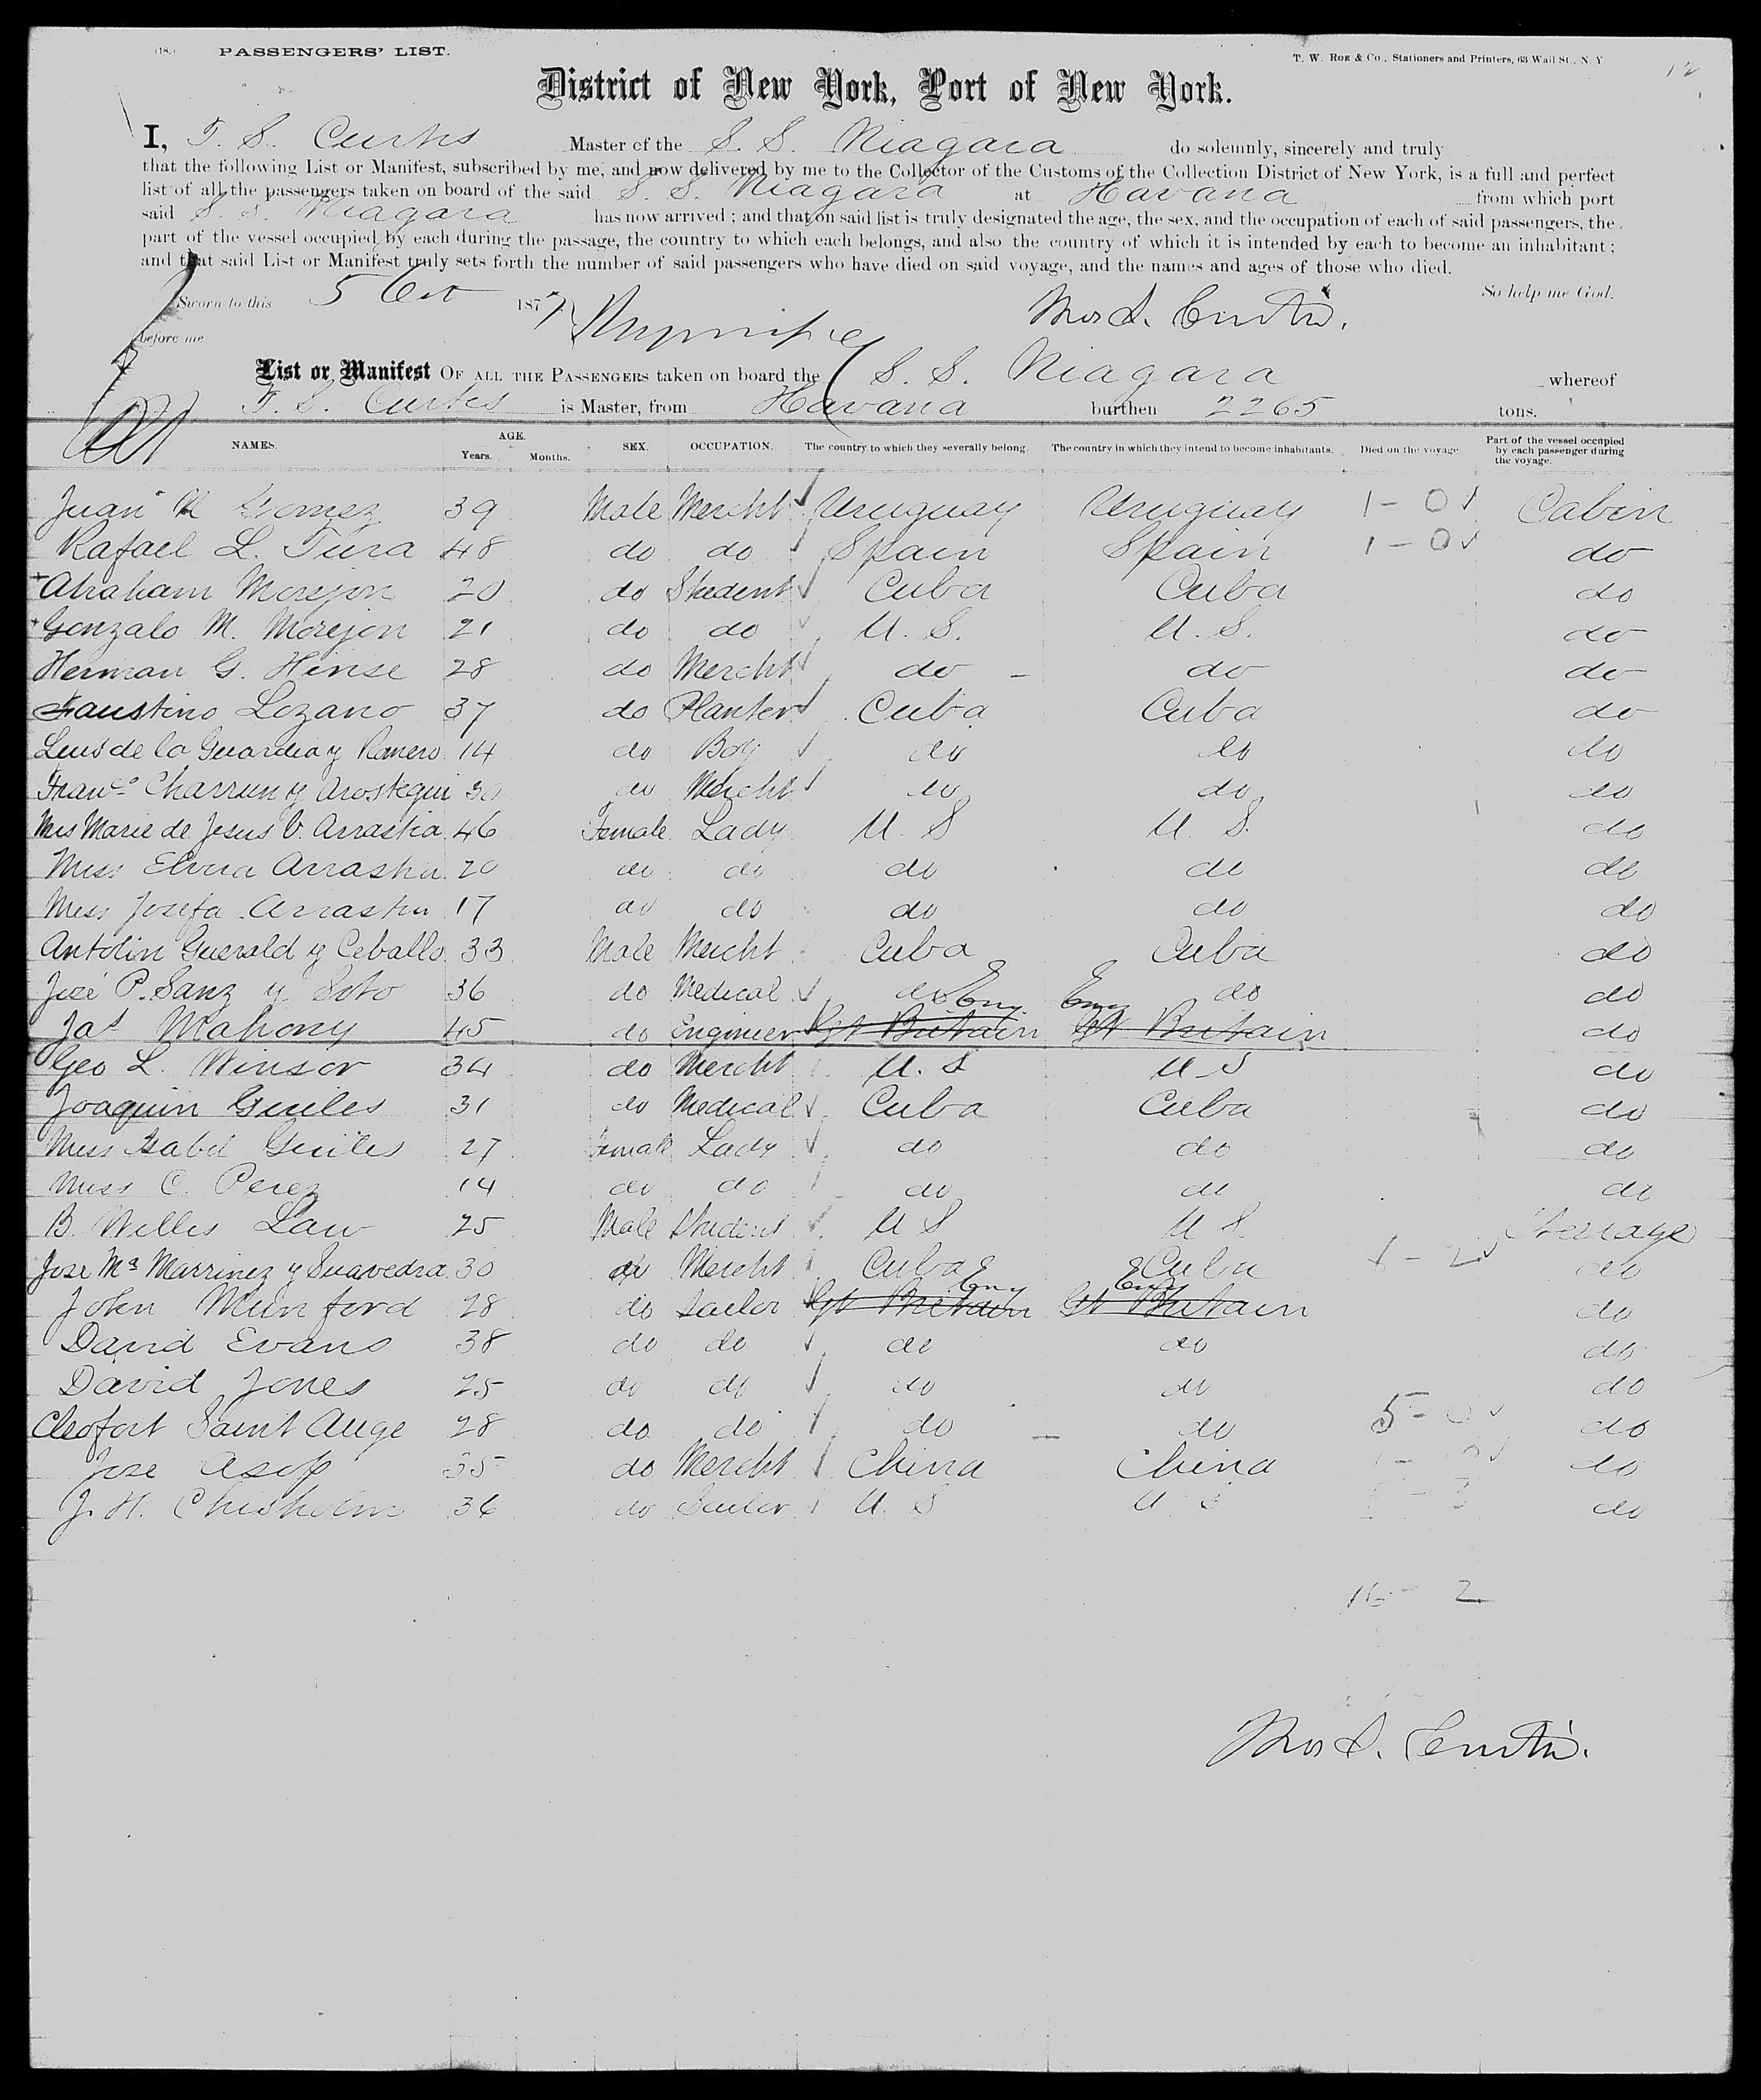 (18.) PASSENGERS' LIST. T. W. ROE & CO., Stationers and Printers, 63 Wall St., N. Y.
12
District of New York, Port of New York.
I, T. S. Curtis Master of the S. S. Niagara do solemnly, sincerely and truly
that the following List or Manifest, subscribed by me, and now delivered by me to the Collector of the Customs of the Collection District of New York, is a full and perfect
list of all the passengers taken on board of the said S. S. Niagara at Havana from which port
said S. S. Niagara has now arrived; and that on said list is truly designated the age, the sex, and the occupation of each of said passengers, the
part of the vessel occupied by each during the passage, the country to which each belongs, and also the country of which it is intended by each to become an inhabitant;
and that said List or Manifest truly sets forth the number of said passengers who have died on said voyage, and the names and ages of those who died.
So help me God.
Sworn to this 5 Oct 1877 Thos S. Curtis.
before me
List or Manifest OF ALL THE PASSENGERS taken on board the S. S. Niagara whereof
T. S. Curtis is Master, from Havana burthen 2265 tons.
NAMES. AGE. Years. Months. SEX. OCCUPATION. The country to which they severally belong. The country in which they intend to become inhabitants. Died on the voyage Part of the vessel occupied by each passenger during the voyage.
Juan Gomez 39 Male Mercht Uruguay Uruguay 1 - 0 Cabin
Rafael L. Tura 48 do do Spain Spain 1 - 0 do
Abraham Morejon 20 do Student Cuba Cuba do
Gonzalo M. Morejon 21 do do U. S. U. S. do
Herman G. Hinse 28 do Mercht do do do
Faustino Lozano 37 do Planter Cuba Cuba do
Luis de la Guardia y Romero 14 do Boy do do do
Franco Charrun y Arostegui 30 do Mercht do do do
Mrs Marie de Jesus V. Arrastia 46 Female Lady U. S U. S. do
Miss Elvira Arrastia 20 do do do do do
Miss Josefa Arrastia 17 do do do do do
Antolin Guerald y Ceballo 33 Male Mercht Cuba Cuba do
José P. Sanz y Soto 36 do Medical do do do
Jas Mahony 45 do Engineer Gt Britain Eng Gt Britain Eng do
Geo L. Winsor 34 do Mercht U. S U S do
Joaquin Guiles 31 do Medical Cuba Cuba do
Miss Isabel Guiles 27 Female Lady do do do
Miss C. Perez 14 do do do do do
B. Willis Law 25 Male Student U S U S. Steerage
Jose Ma Marrinez y Suavedra 30 do Mercht Cuba Cuba 1 - 2 do
John Munford 28 do Sailor Gt Britain Eng Gt Britain Eng do
David Evans 38 do do do do do
David Jones 25 do do do do do
Cleofort Saint Auge 28 do do do do 5 - 0 do
Jose Asip 35 do Mercht China China do
J. H. Chisholm 36 do Sailor U. S U S do
16 - 2
Thos S. Curtis.